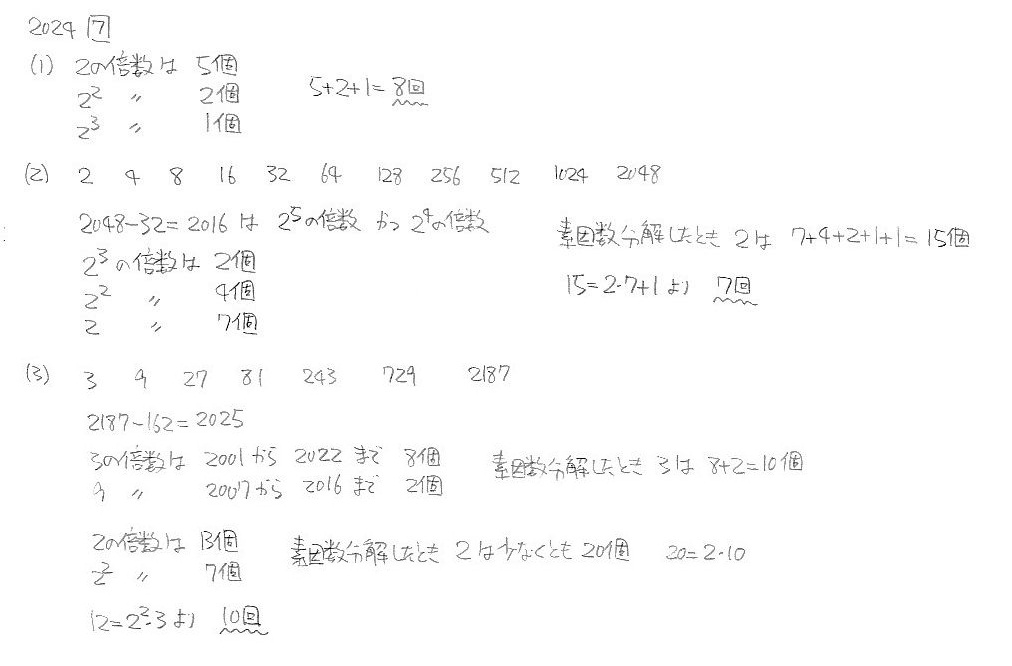 2024 7
(1) 2の倍数は 5個
2² 〃 2個
2³ 〃 1個
5+2+1=8回
(2) 2 4 8 16 32 64 128 256 512 1024 2048
2048-32=2016 は 2⁵の倍数 かつ 2⁴の倍数
2³の倍数は 2個
2² 〃 4個
2 〃 7個
素因数分解したとき 2は 7+4+2+1+1=15個
15=2・7+1より 7回
(3) 3 9 27 81 243 729 2187
2187-162=2025
3の倍数は 2001から 2022まで 8個
9 〃 2007から 2016まで 2個
素因数分解したとき 3は 8+2=10個
2の倍数は 13個
2² 〃 7個
素因数分解したとき 2は少なくとも 20個 20=2・10
12=2²・3より 10回